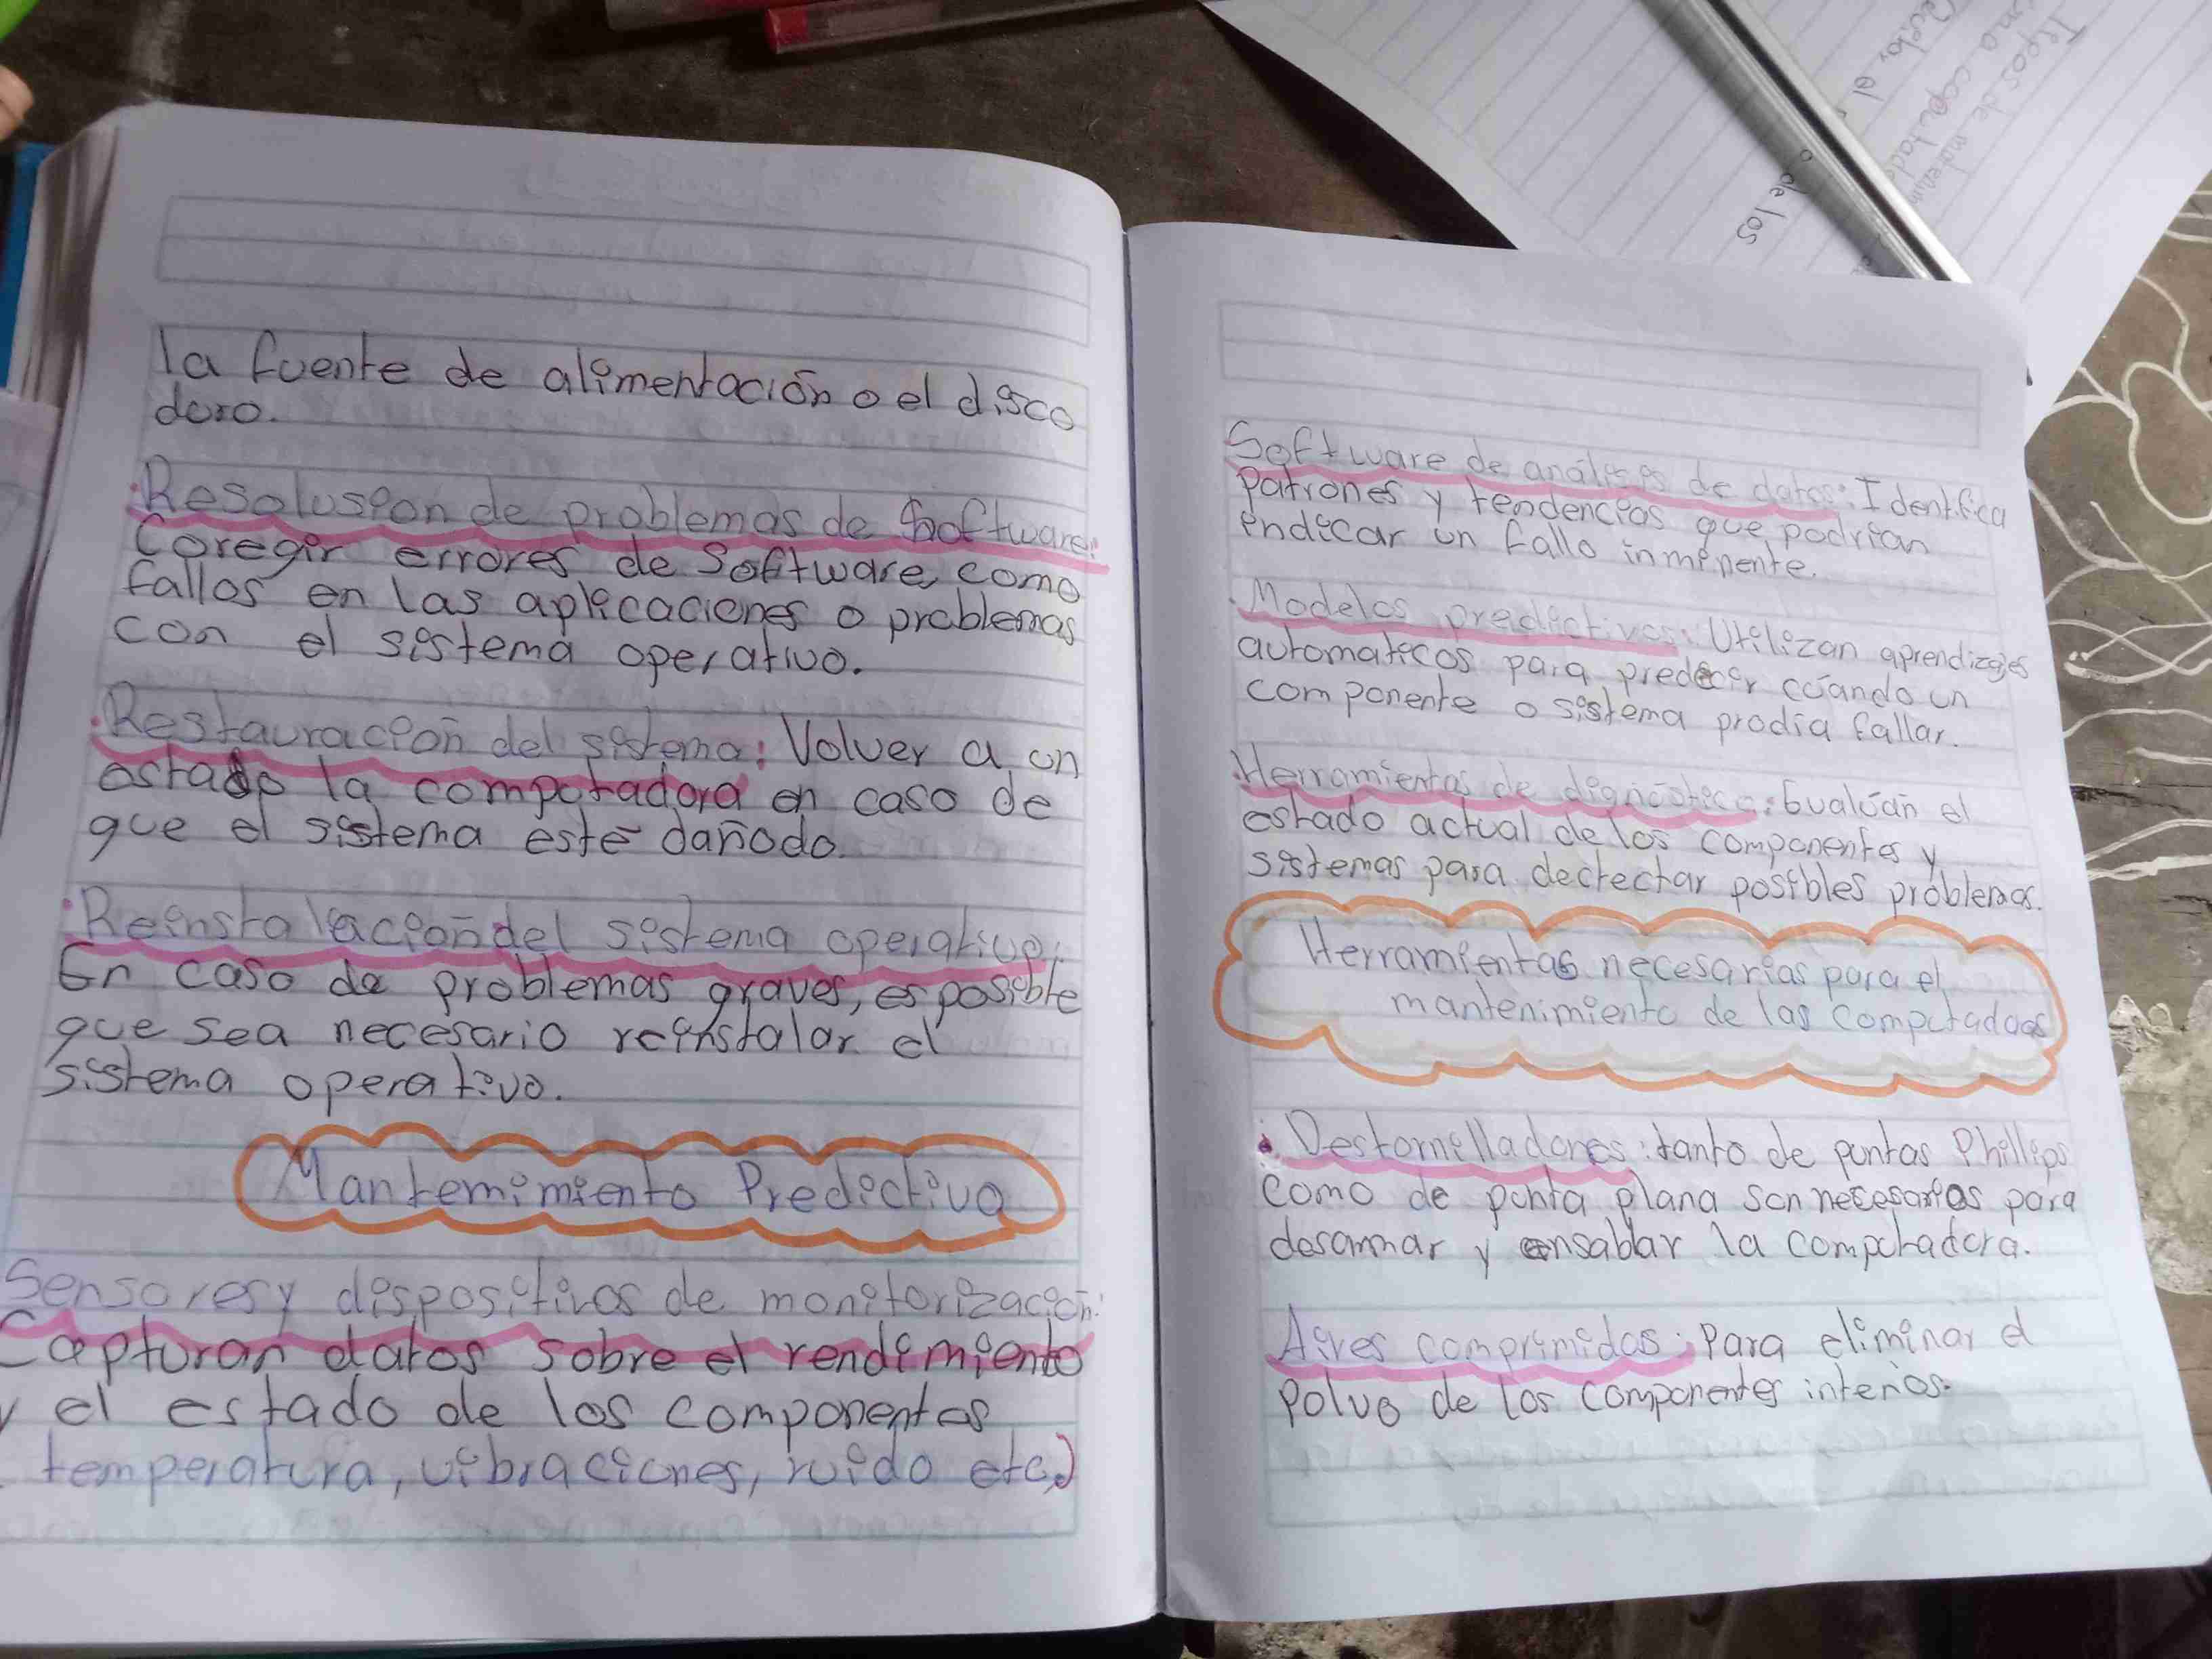 la fuente de alimentación o el disco
duro.
·Resolusion de problemas de Software:
Coregir errores de Software, como
fallos en las aplicaciones o problemas
con el sistema operativo.
·Restauración del sistema: Volver a un
estado la computadora en caso de
que el sistema esté dañodo.
·Reinstalación del sistema operativo:
En caso de problemas graves, es posible
que sea necesario reinstalar el
sistema operativo.
Mantemimiento Predictivo
Sensores y dispositivos de monitorización:
Capturan datos sobre el rendimiento
y el estado de los componentes
temperatura, vibraciones, ruido etc.)
·Software de análisis de datos: Identifica
Patrones y tendencias que podrían
indicar un fallo inminente.
·Modelos predictivos: Utilizan aprendizajes
automaticos para predecir cuando un
componente o sistema prodía fallar.
·Herramientas de dignóstico: Evalúan el
estado actual de los componentes y
sistemas para dectectar posibles problemas.
Herramientas necesarias para el
mantenimiento de las computadoas
· Destornilladores: tanto de puntas Phillips
como de punta plana son necesarios para
desarmar y ensablar la computadora.
Aires comprimidos: Para eliminar el
polvo de los componentes interios.
Tepos de
una
de los